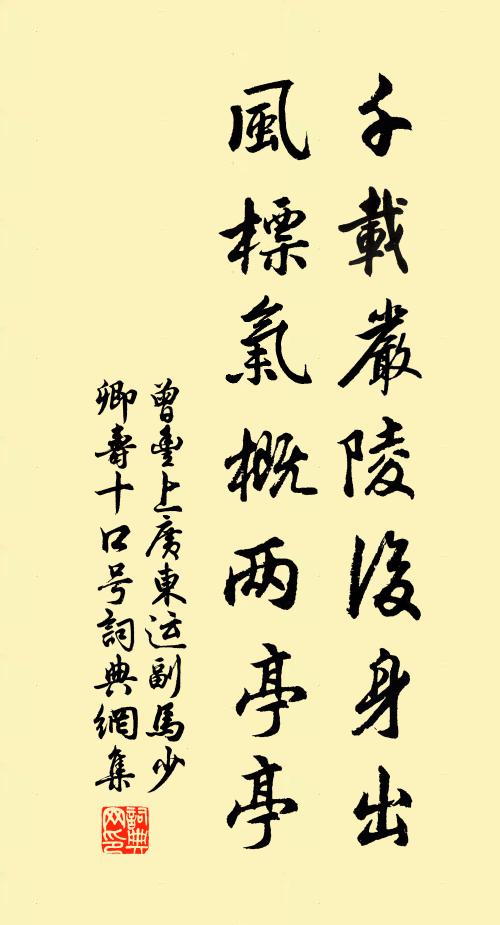 千載嚴陵後身出
風標氣概两亭亭
曾豐上廣東运副馬少
卿壽十口号詞典網集
詞典网印